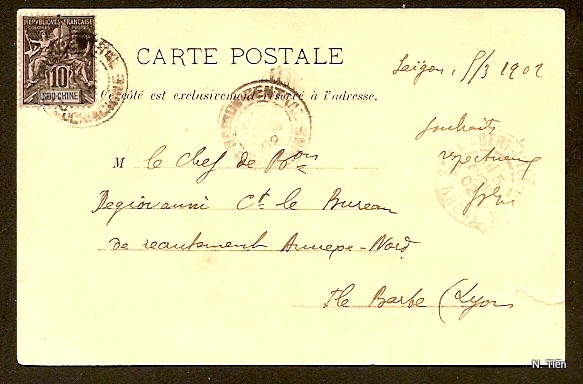 RÉPUBLIQUE FRANÇAISE
COLONIES POSTES
10
INDO-CHINE
CARTE POSTALE
Saigon, 5/3 1902
Ce côté est exclusivement réservé à l'adresse.
souhaits
respectueux
M le Chef de Bon
Degiovanni Ct le Bureau
de recrutement Annexe-Nord
Ile Barbe (Lyon
N. Tien